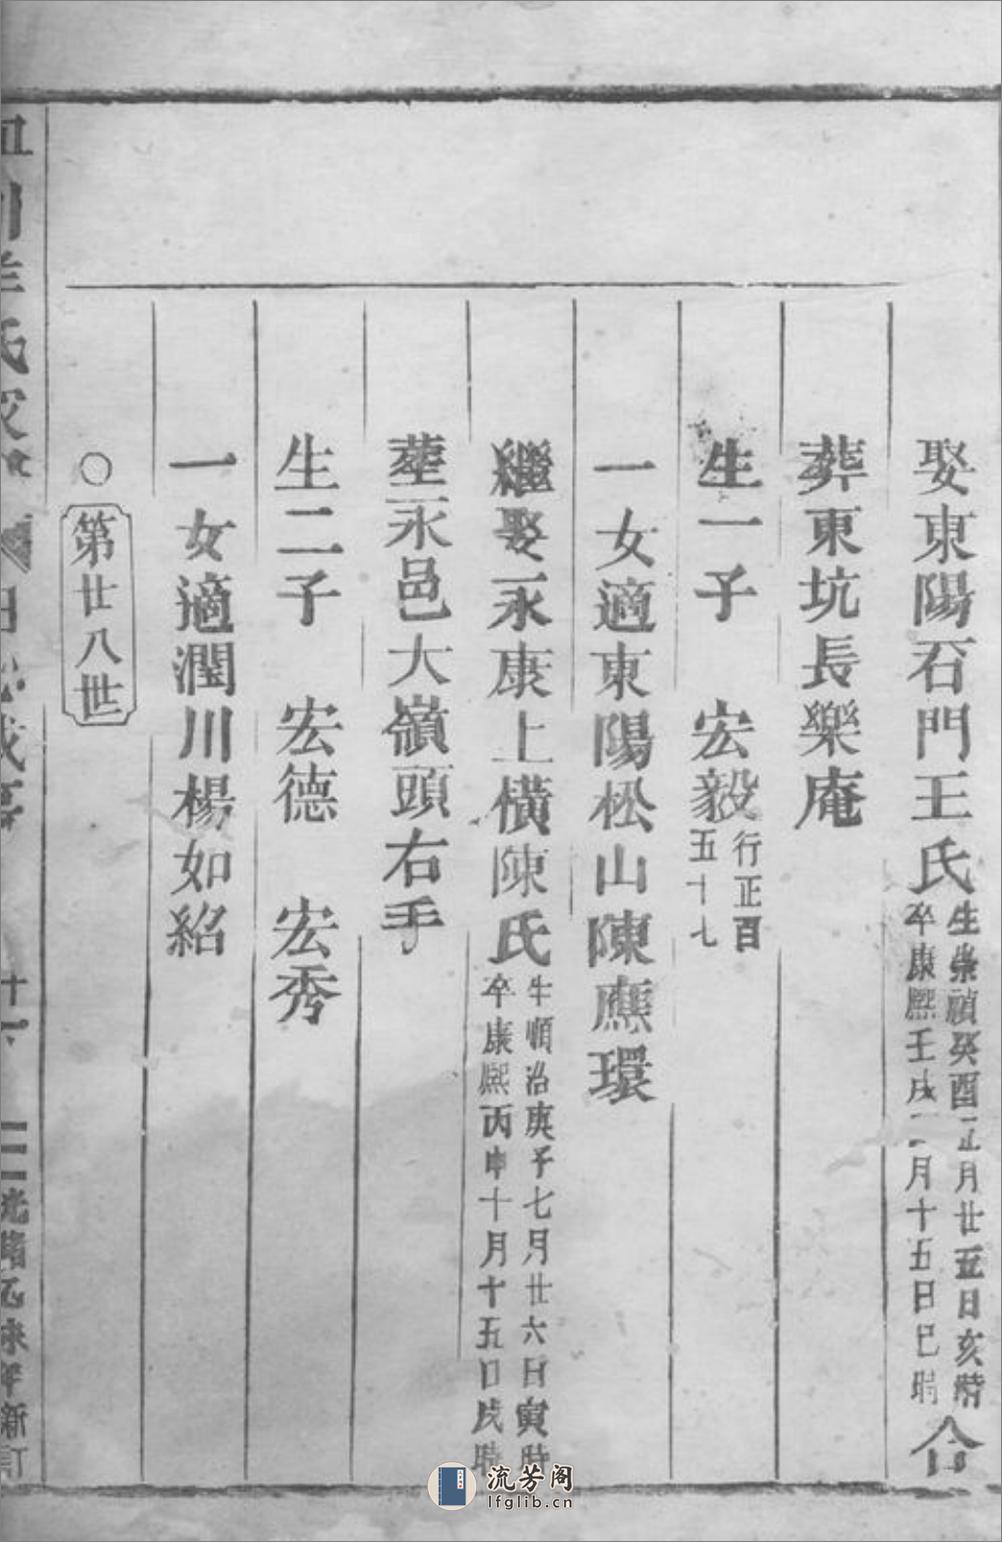 娶東陽石門王氏生崇禎癸酉正月廿五日亥時卒康熙壬戌二月十五日巳時合
葬東坑長樂庵
生一子　宏毅行正百五十七
一女適東陽松山陳應環
繼娶永康上橫陳氏生順治庚子七月廿六日寅時卒康熙丙申十月十五日戌時
葬永邑大嶺頭右手
生二子　宏德　宏秀
一女適潤川楊如紹
○第廿八世
氏
光緒乙未年新訂
流芳阁
lfglib.cn